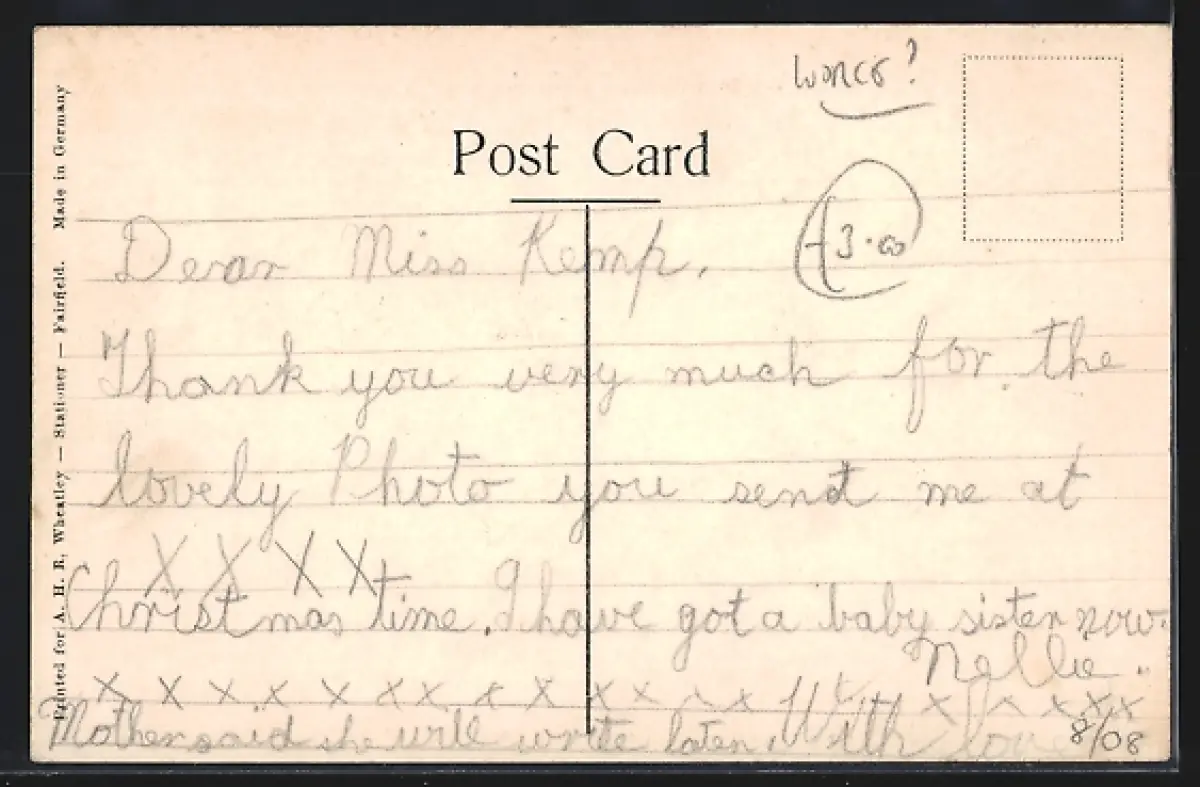 Worcs?
Post Card
£3.00
Dear Miss Kemp.
Thank you very much for the
lovely Photo you send me at
X X X X
Christmas time. I have got a baby sister now.
Nellie
X X X X X X X X X X X X X X X X X X
Mother said she will write later. With love
8/08
Printed for A. H. R. Wheatley — Stationer — Fairfield. Made in Germany